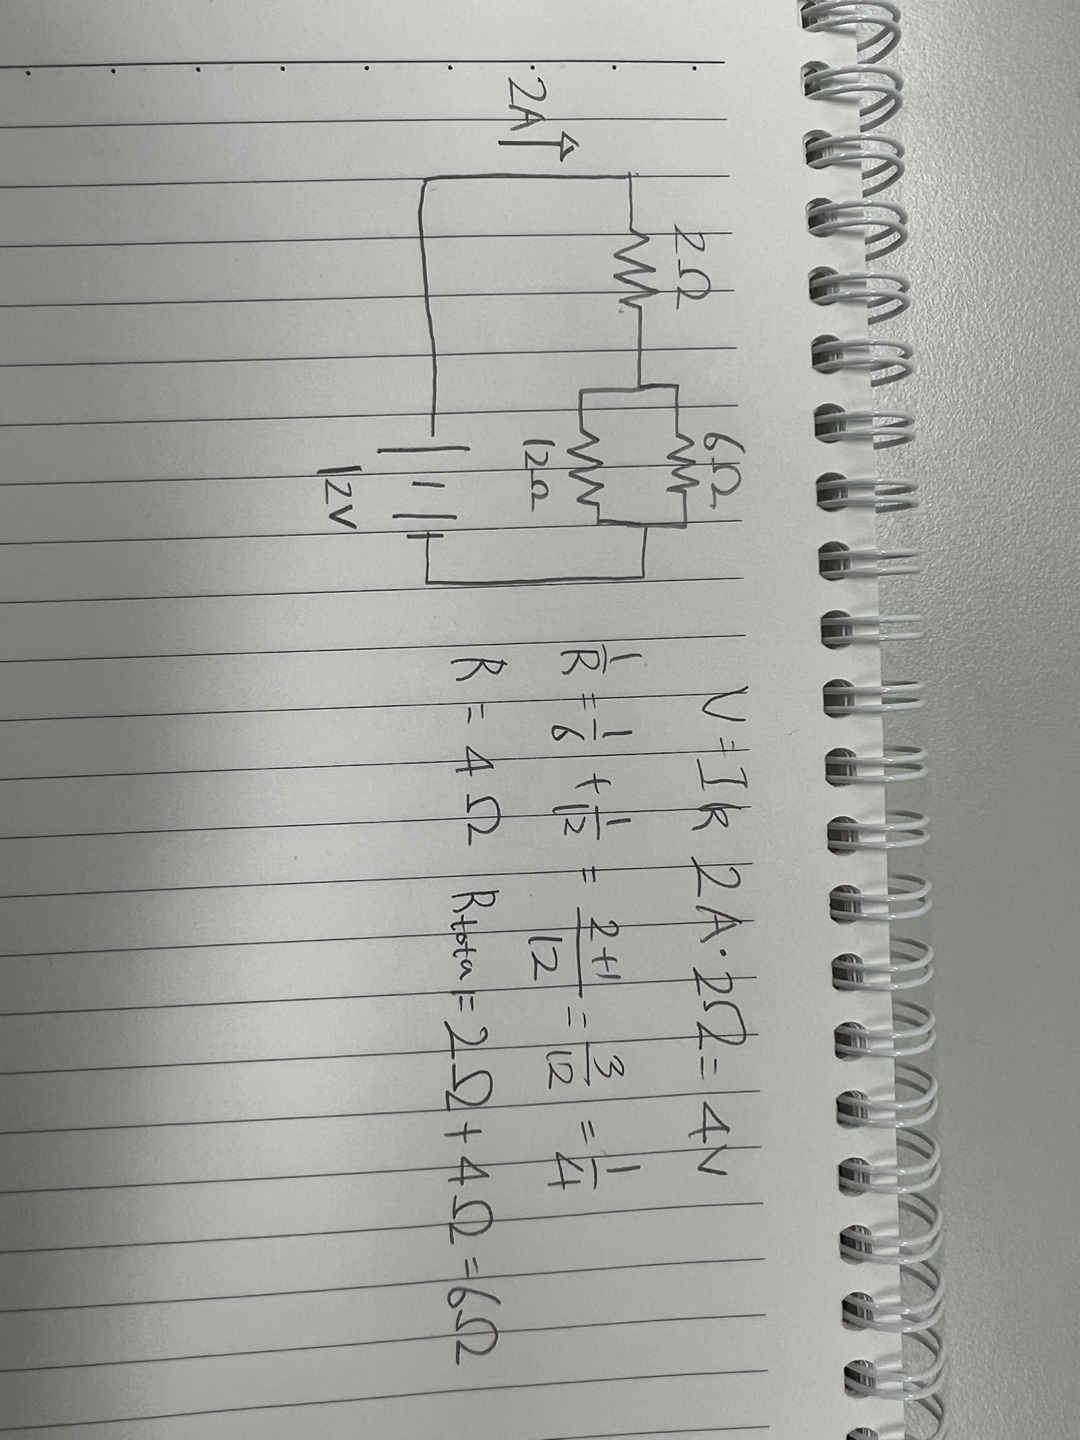 2A
2Ω
6Ω
12Ω
12V
V=IR 2A·2Ω=4V
1/R = 1/6 + 1/12 = 2+1/12 = 3/12 = 1/4
R = 4Ω Rtotal=2Ω+4Ω=6Ω